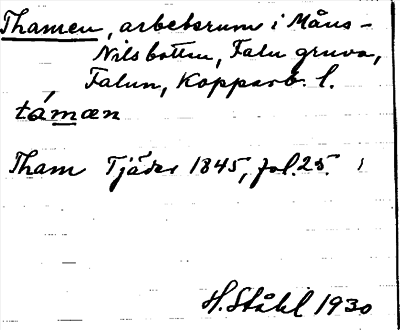 Thamen, arbetsrum i Måns-
Nilsbotten, Falu gruva,
Falun, Kopparb. l.
támæn
Tham Tjäder 1845, fol. 25.
H. Ståhl 1930